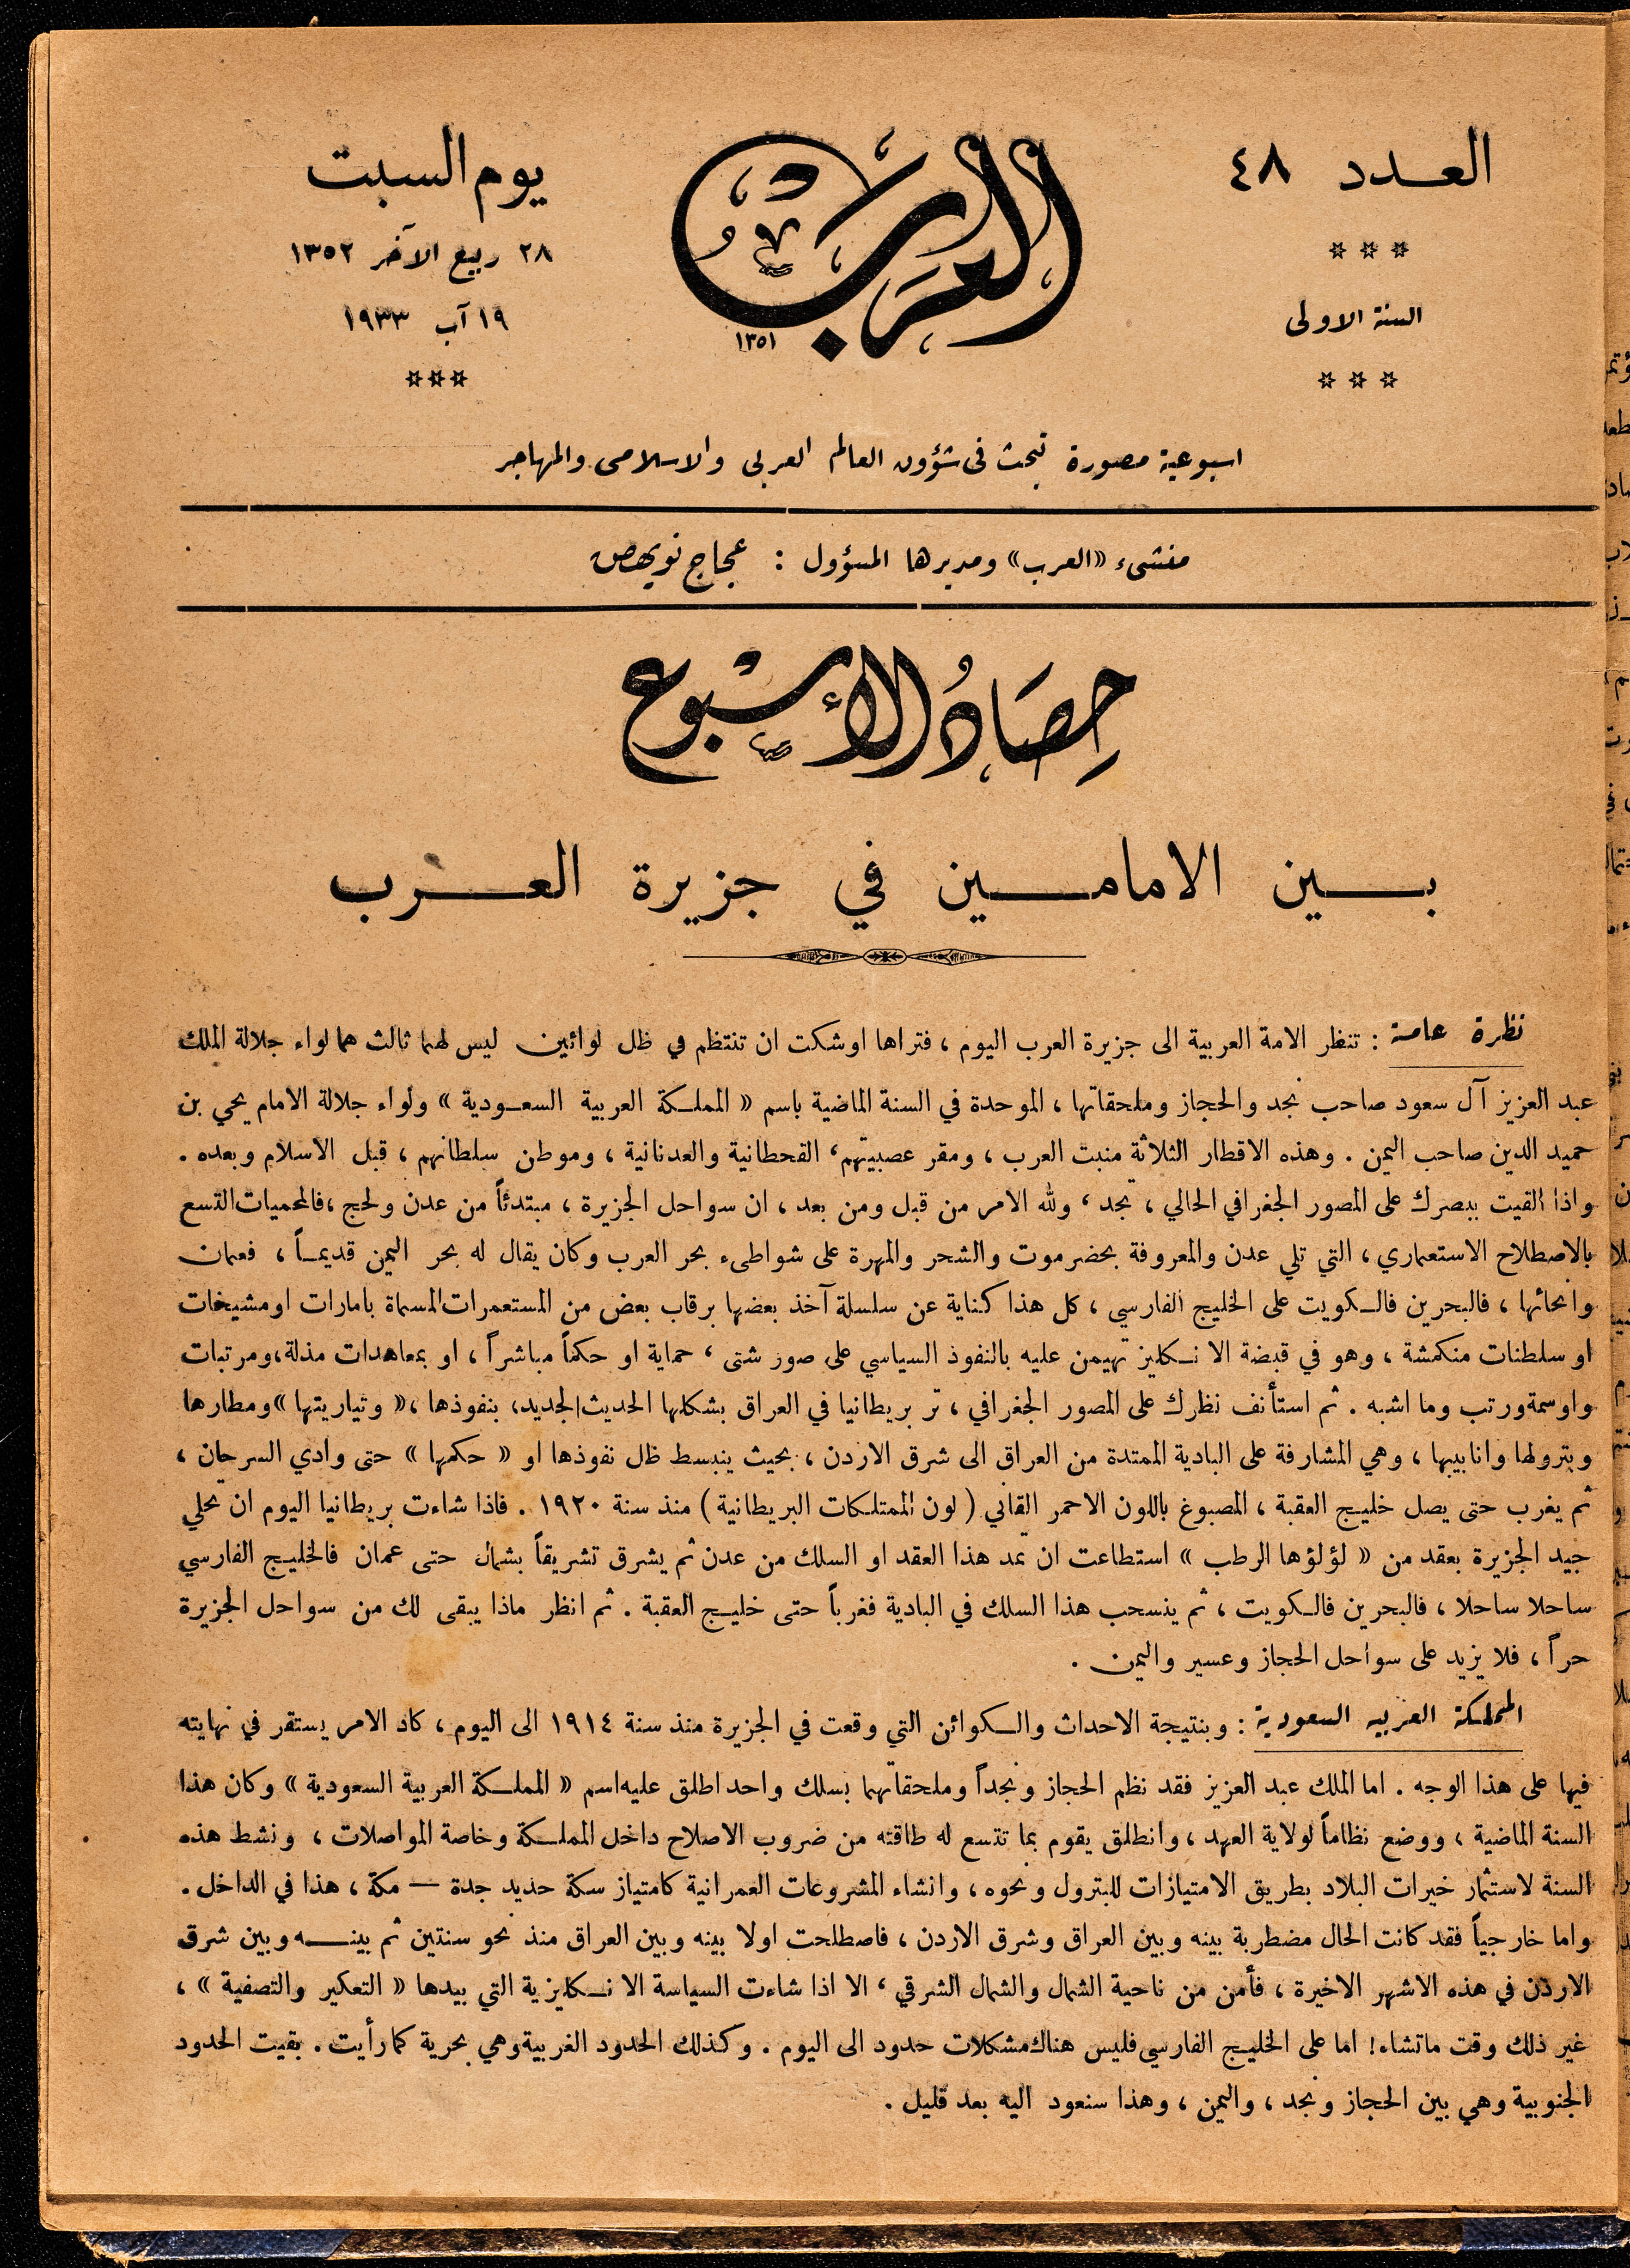 العدد ٤٨
السنة الاولى
العرب
١٣٥١
يوم السبت
٢٨ ربيع الآخر ١٣٥٢
١٩ آب ١٩٣٣
اسبوعية مصورة تبحث في شؤون العالم العربي والاسلامي والمهاجر
منشىء «العرب» ومديرها المسؤول : عجاج نويهض
حِصَادُ الأُسْبُوع
بين الامامين في جزيرة العرب
نظرة عامة : تنظر الامة العربية الى جزيرة العرب اليوم ، فتراها اوشكت ان تنتظم في ظل لوائين ليس لهما ثالث هما لواء جلالة الملك
عبد العزيز آل سعود صاحب نجد والحجاز وملحقاتها ، الموحدة في السنة الماضية باسم « المملكة العربية السعودية » ولواء جلالة الامام يحي بن
حميد الدين صاحب اليمن . وهذه الاقطار الثلاثة منبت العرب ، ومقر عصبيتهم، القحطانية والعدنانية ، وموطن سلطانهم ، قبل الاسلام وبعده .
واذا القيت ببصرك على المصور الجغرافي الحالي ، تجد ، ولله الامر من قبل ومن بعد ، ان سواحل الجزيرة ، مبتدئاً من عدن ولحج ،فالمحميات التسع
بالاصطلاح الاستعماري ، التي تلي عدن والمعروفة بحضرموت والشحر والمهرة على شواطىء بحر العرب وكان يقال له بحر اليمن قديمـاً ، فعمان
وانحائها ، فالبحرين فالكويت على الخليج الفارسي ، كل هذا كناية عن سلسلة آخذ بعضها برقاب بعض من المستعمرات المسماة بامارات او مشيخات
او سلطنات منكمشة ، وهو في قبضة الانكليز تهيمن عليه بالنفوذ السياسي على صور شتى ، حماية او حكماً مباشراً ، او بمعاهدات مذلة،ومرتبات
واوسمة ورتب وما اشبه . ثم استأنف نظرك على المصور الجغرافي ، تر بريطانيا في العراق بشكلها الحديث الجديد، بنفوذها ،« وتياريتها » ومطارها
وبترولها وانابيبها ، وهي المشارفة على البادية الممتدة من العراق الى شرق الاردن ، بحيث ينبسط ظل نفوذها او « حكمها » حتى وادي السرحان ،
ثم يغرب حتى يصل خليج العقبة ، المصبوغ باللون الاحمر القاني ( لون الممتلكات البريطانية ) منذ سنة ١٩٢٠ . فاذا شاءت بريطانيا اليوم ان تحلي
جيد الجزيرة بعقد من « لؤلؤها الرطب » استطاعت ان تمد هذا العقد او السلك من عدن ثم يشرق تشريقاً بشمال حتى عمان فالخليج الفارسي
ساحلا ساحلا ، فالبحرين فالكويت ، ثم ينسحب هذا السلك في البادية فغرباً حتى خليج العقبة . ثم انظر ماذا يبقى لك من سواحل الجزيرة
حراً ، فلا يزيد على سواحل الحجاز وعسير واليمن .
المملكة العربيه السعودية : وبنتيجة الاحداث والكوائن التي وقعت في الجزيرة منذ سنة ١٩١٤ الى اليوم ، كاد الامر يستقر في نهايته
فيها على هذا الوجه . اما الملك عبد العزيز فقد نظم الحجاز ونجداً وملحقاتهما بسلك واحد اطلق عليه اسم « المملكة العربية السعودية » وكان هذا
السنة الماضية ، ووضع نظاماً لولاية العهد ، وانطلق يقوم بما تتسع له طاقته من ضروب الاصلاح داخل المملكة وخاصة المواصلات ، ونشط هذه
السنة لاستثمار خيرات البلاد بطريق الامتيازات للبترول ونحوه ، وانشاء المشروعات العمرانية كامتياز سكة حديد جدة — مكة ، هذا في الداخل .
واما خارجياً فقد كانت الحال مضطربة بينه وبين العراق وشرق الاردن ، فاصطلحت اولا بينه وبين العراق منذ نحو سنتين ثم بينه وبين شرق
الاردن في هذه الاشهر الاخيرة ، فأمن من ناحية الشمال والشمال الشرقي ، الا اذا شاءت السياسة الانكليزية التي بيدها « التعكير والتصفية » ،
غير ذلك وقت ماتشاء! اما على الخليج الفارسي فليس هناك مشكلات حدود الى اليوم . وكذلك الحدود الغربية وهي بحرية كما رأيت . بقيت الحدود
الجنوبية وهي بين الحجاز ونجد ، واليمن ، وهذا سنعود اليه بعد قليل .